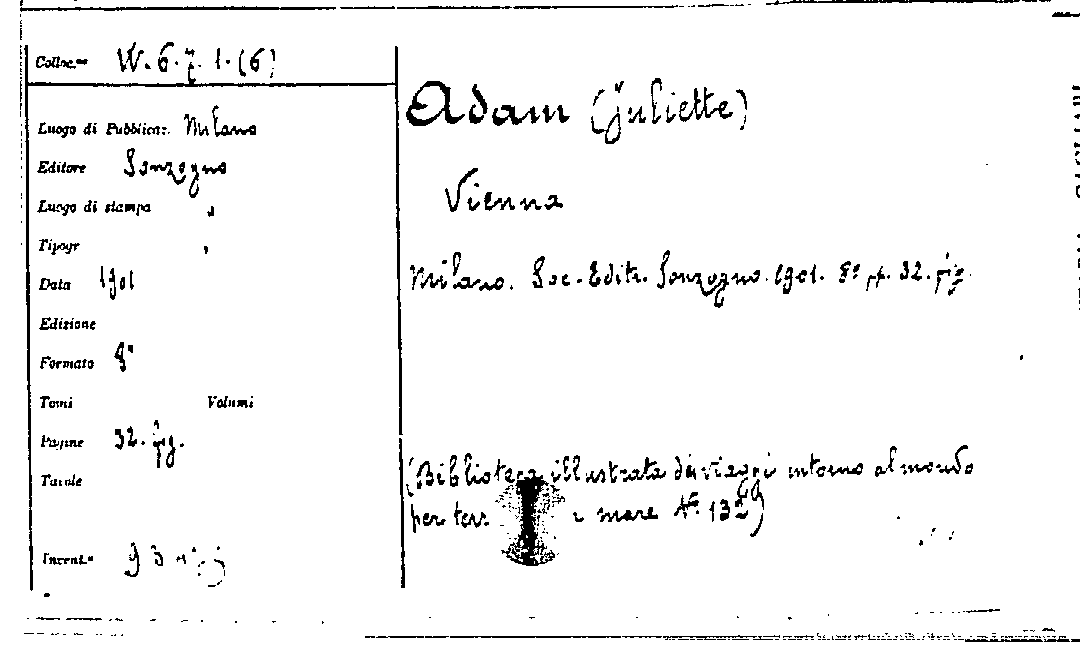 Colloc.ne W. 6. 7. 1. (6)
Luogo di Pubblicaz. Milano
Editore Sonzogno
Luogo di stampa "
Tipogr "
Data 1901
Edizione
Formato 8°
Tomi Volumi
Pagine 32. fig.
Tavole
Invent.°
Adam (Juliette)
Vienna
Milano. Soc. Edit. Sonzogno. 1901. 8° p. 32. fig.
(Biblioteca illustrata dei viaggi intorno al mondo
per terr e mare N°. 13)